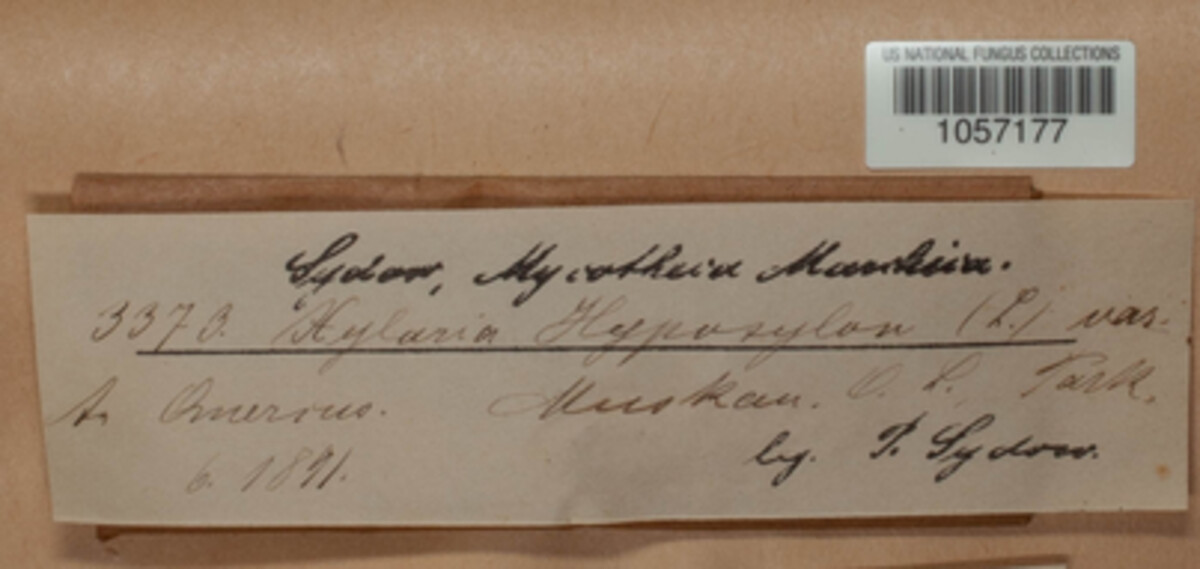 US NATIONAL FUNGUS COLLECTIONS
1057177
Sydow, Mycotheca Marchica.
3373. Xylaria Hypoxylon (L.) var.
Quercus. Muskau. O. L. Park.
6. 1891.
leg. P. Sydow.